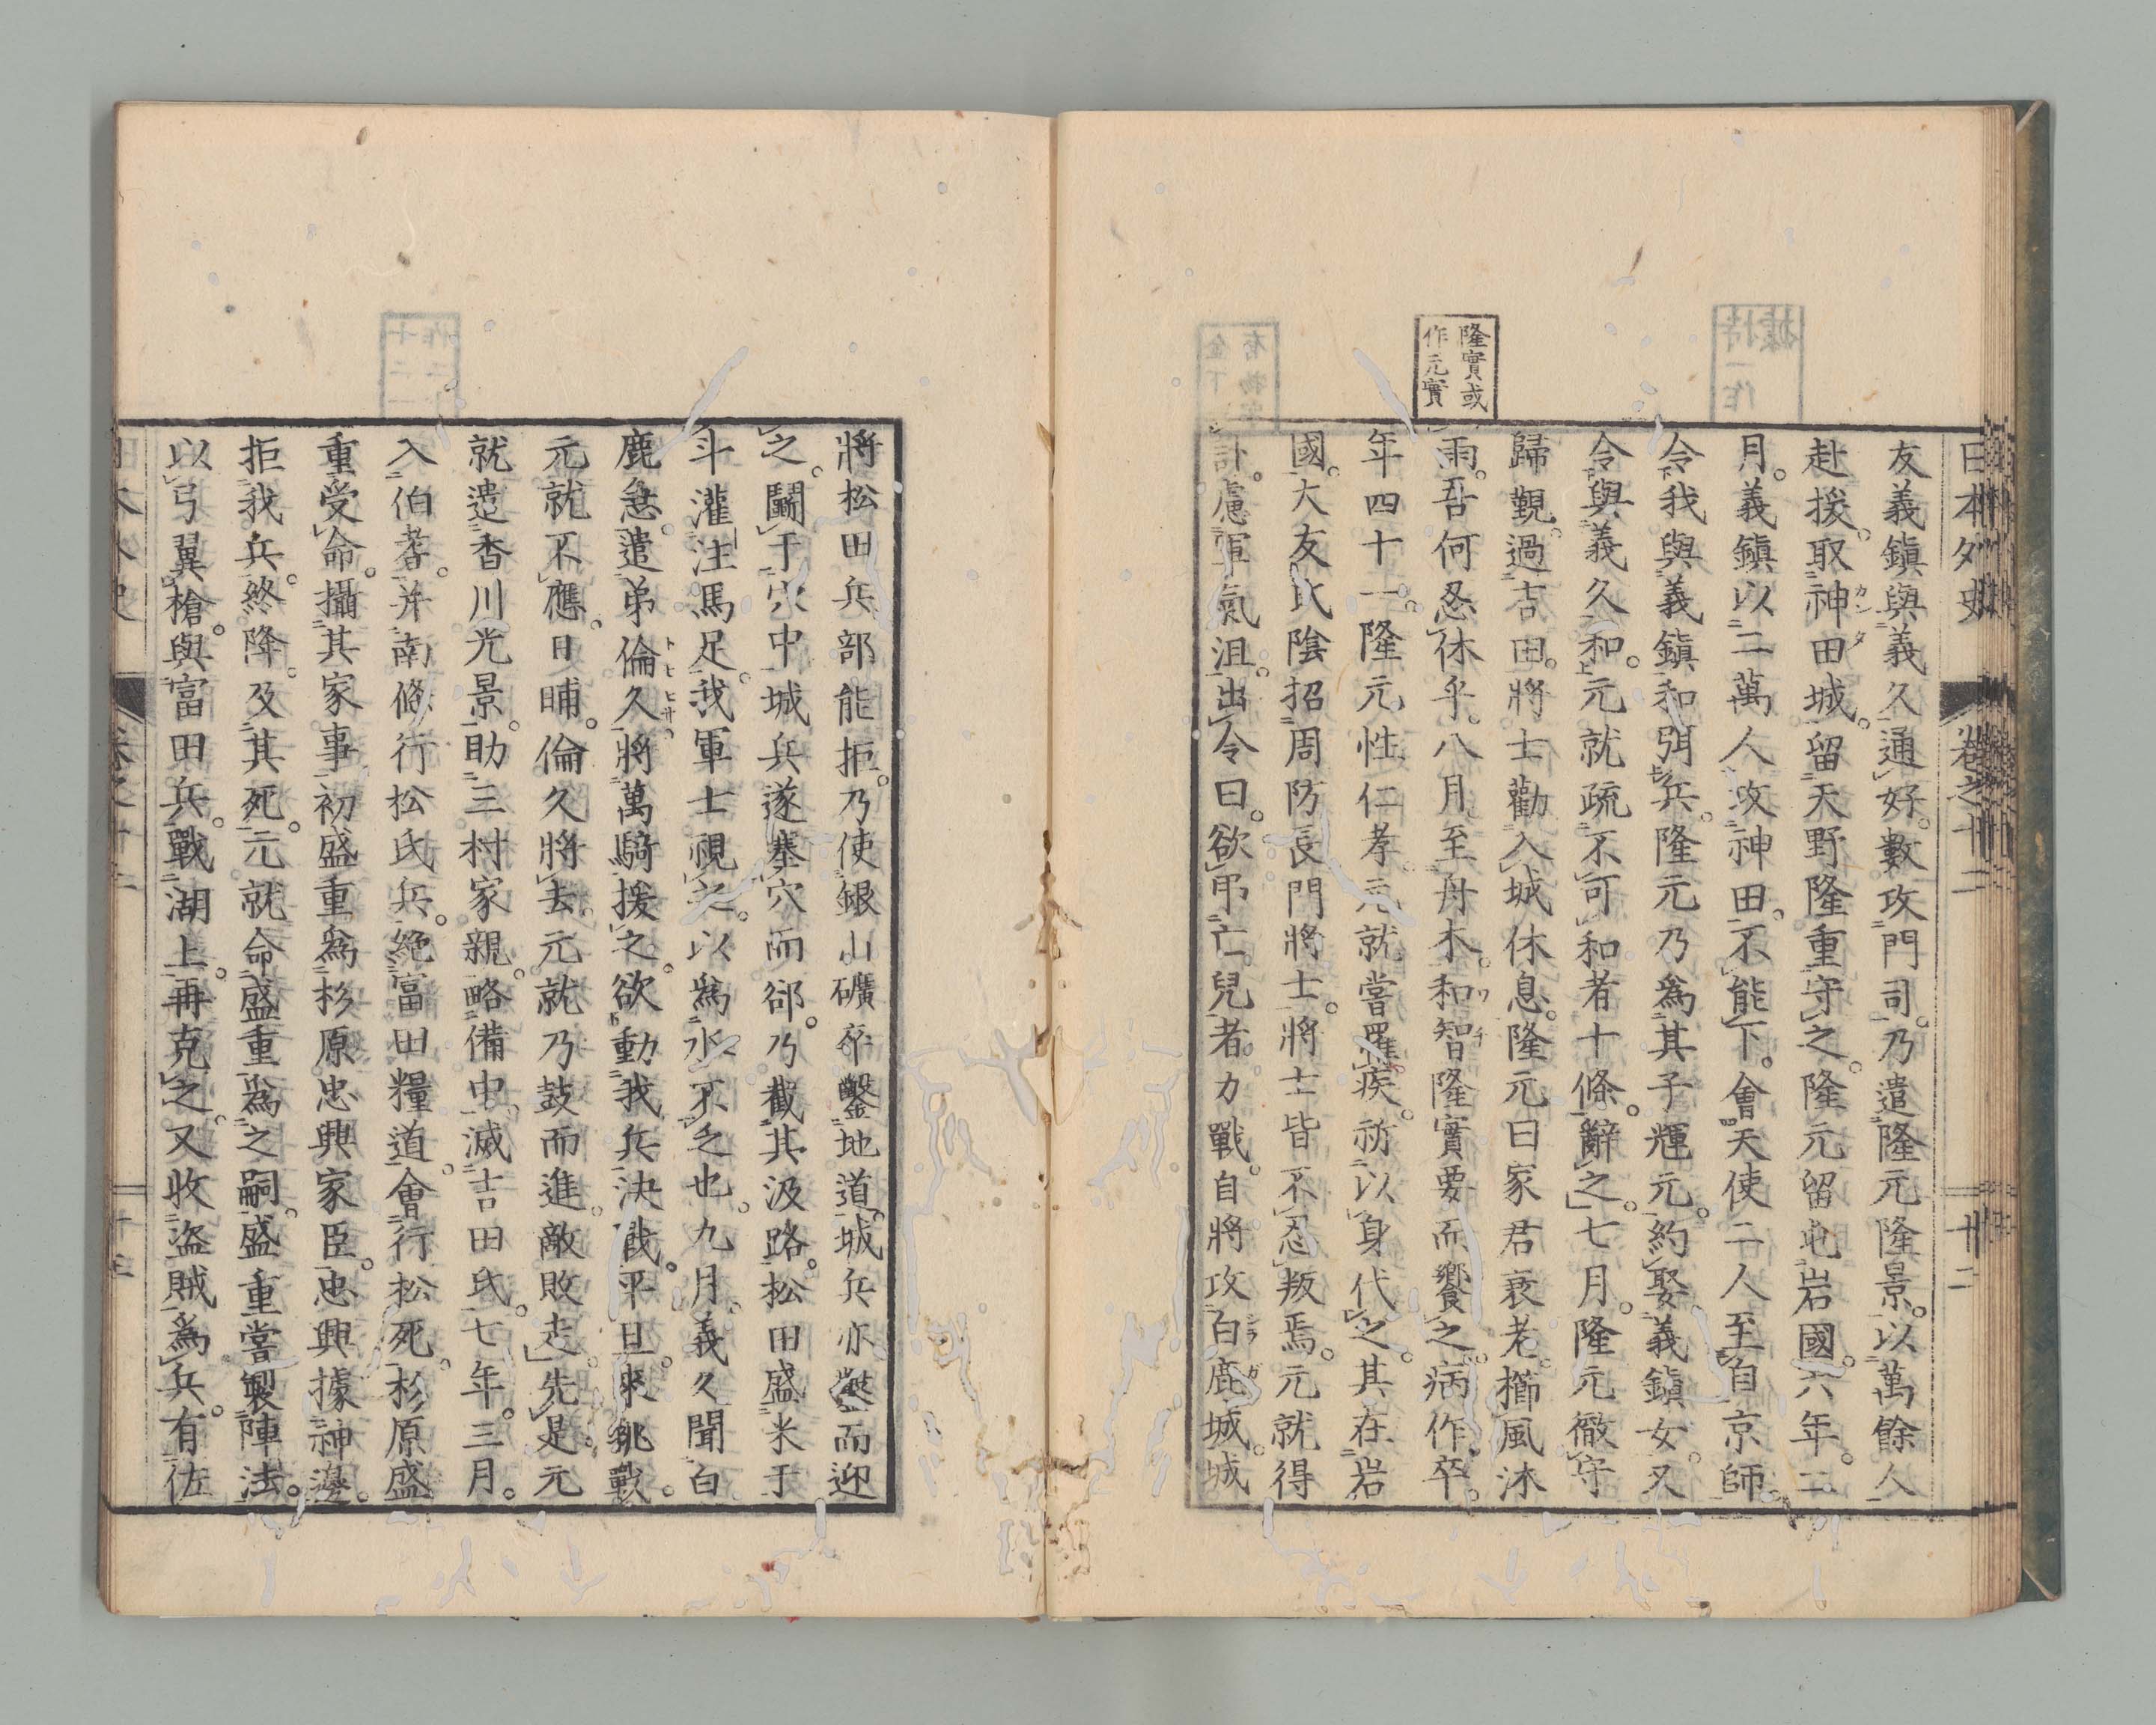 日本外史
卷之十二
十二
隆實或
作元實
友義鎭與義久通好。數攻門司。乃遣隆元隆景。以萬餘人
赴援。取神田城。留天野隆重守之。隆元留屯岩國。六年。二
月。義鎭以二萬人攻神田。不能下。會天使二人至自京師。
令我與義鎭和弭兵。隆元乃爲其子輝元。約娶義鎭女。又
令與義久和。元就疏不可和者十條。辭之。七月。隆元徹守
歸覲。過吉田。將士勸入城休息。隆元曰家君衰老。櫛風沐
雨。吾何忍休乎。八月。至舟木。和智隆實要而饗之。病作。卒。
年四十一。隆元性仁孝。元就嘗罹疾。禱以身代之。其在岩
國。大友氏陰招周防長門將士。將士皆不忍叛焉。元就得
訃。慮軍氣沮。出令曰。欲弔亡兒者力戰。自將攻白鹿城。城
將松田兵部能拒。乃使銀山礦卒鑿地道。城兵亦鑿而迎
之。鬭于穴中。城兵遂塞穴而郤。乃截其汲路。松田盛米于
斗灌注馬足。我軍士視之。以爲水不乏也。九月。義久聞白
鹿急。遣弟倫久。將萬騎援之。欲動我兵決戰。平旦。來挑戰。
元就不應。日晡。倫久將去。元就乃鼓而進。敵敗走。先是。元
就遣香川光景。助三村家親。略備中。滅吉田氏。七年。三月。
入伯耆。并南條行松氏兵。絶富田糧道。會行松死。杉原盛
重受命。攝其家事。初盛重爲杉原忠興家臣。忠興據神邊。
拒我兵。終降。及其死。元就命盛重爲之嗣。盛重嘗製陣法。
以弓翼槍。與富田兵。戰湖上。再克之。又收盜賊爲兵。有佐